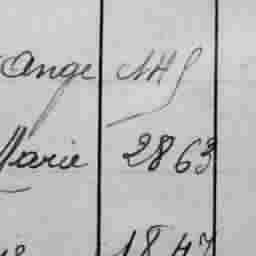 Ange
Marie 2863
1847